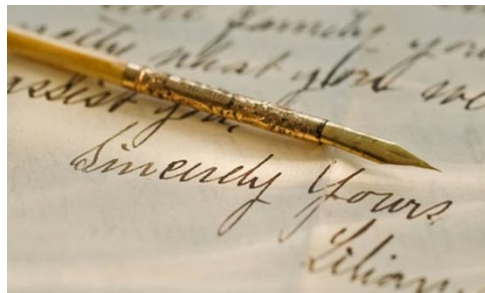 family you
what you we
assist you.
Sincerely Yours
Lilian